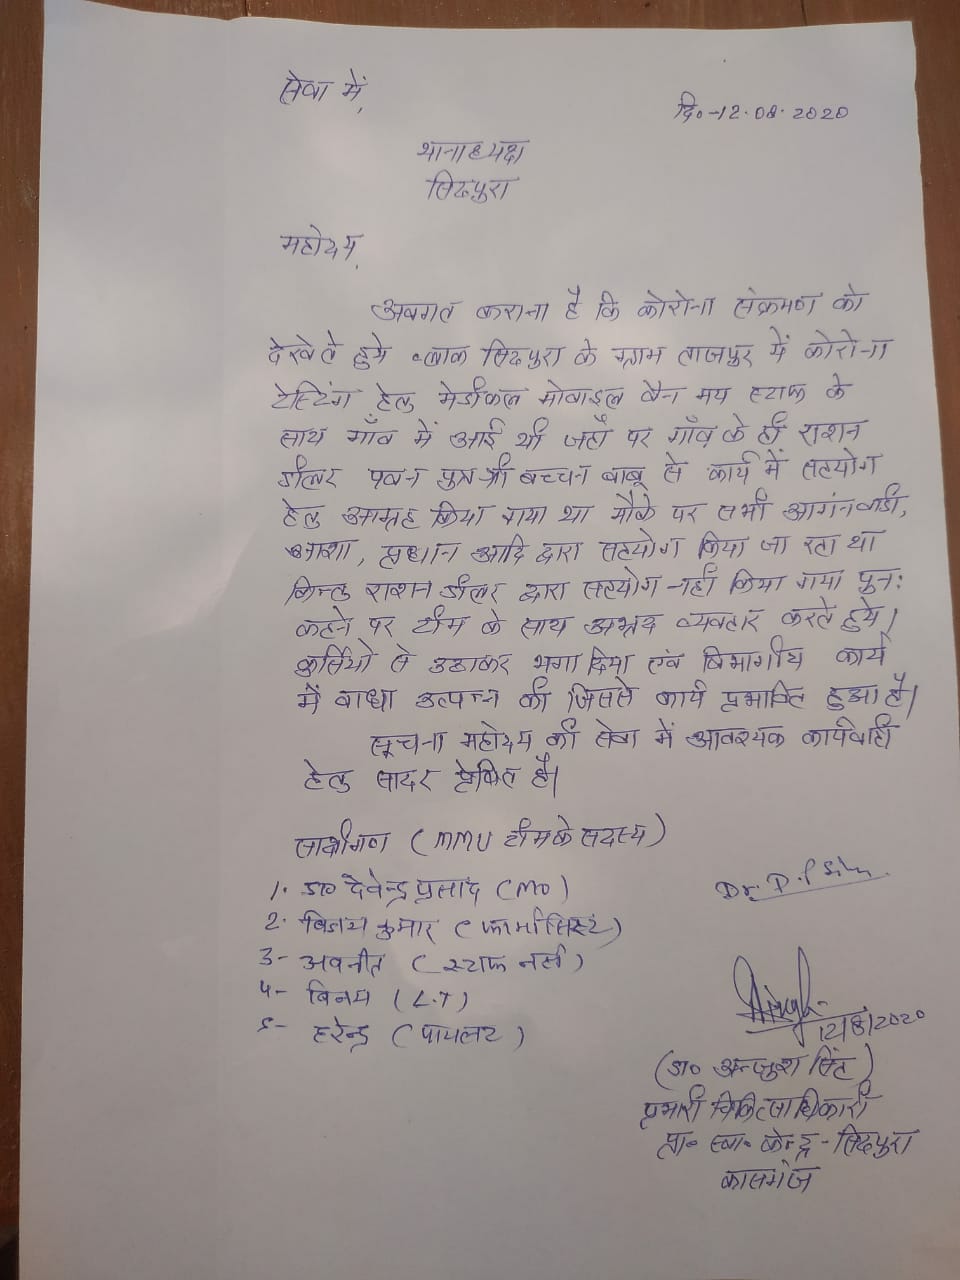 सेवा में,
दि०-12.08.2020
थानाध्यक्ष
सिढपुरा
महोदय,
अवगत कराना है कि कोरोना संक्रमण को
देखते हुये ब्लाक सिढपुरा के ग्राम ताजपुर में कोरोना
टेस्टिंग हेतु मेडीकल मोवाइल वैन मय स्टाफ के
साथ गाँव में आई थी जहाँ पर गाँव के ही राशन
डीलर पवन पुत्र श्री बच्चन बाबू से कार्य में सहयोग
हेतु आग्रह किया गया था मौके पर सभी आगंनवाडी,
आशा, प्रधान आदि द्वारा सहयोग किया जा रहा था
किन्तु राशन डीलर द्वारा सहयोग नहीं किया गया पुन:
कहने पर टीम के साथ अभद्र व्यवहार करते हुये।
कुर्सियो से उठाकर भगा दिया एवं विभागीय कार्य
में बाधा उत्पन्न की जिससे कार्य प्रभावित हुआ है।
सूचना महोदय की सेवा में आवश्यक कार्यवाही
हेतु सादर प्रेषित है।
साक्षीगण (MMU टीम के सदस्य)
1. डा० देवेन्द्र प्रसाद (MO)
Dr. D.P
2. विजय कुमार (फार्मासिस्ट)
3- अवनीत (स्टाफ नर्स)
4- विनय (L.T)
5- हरेन्द्र (पायलट)
12/8/2020
(डा० सिंह)
प्रभारी चिकित्साधिकारी
प्रा० स्वा० केन्द्र - सिढपुरा
कासगंज